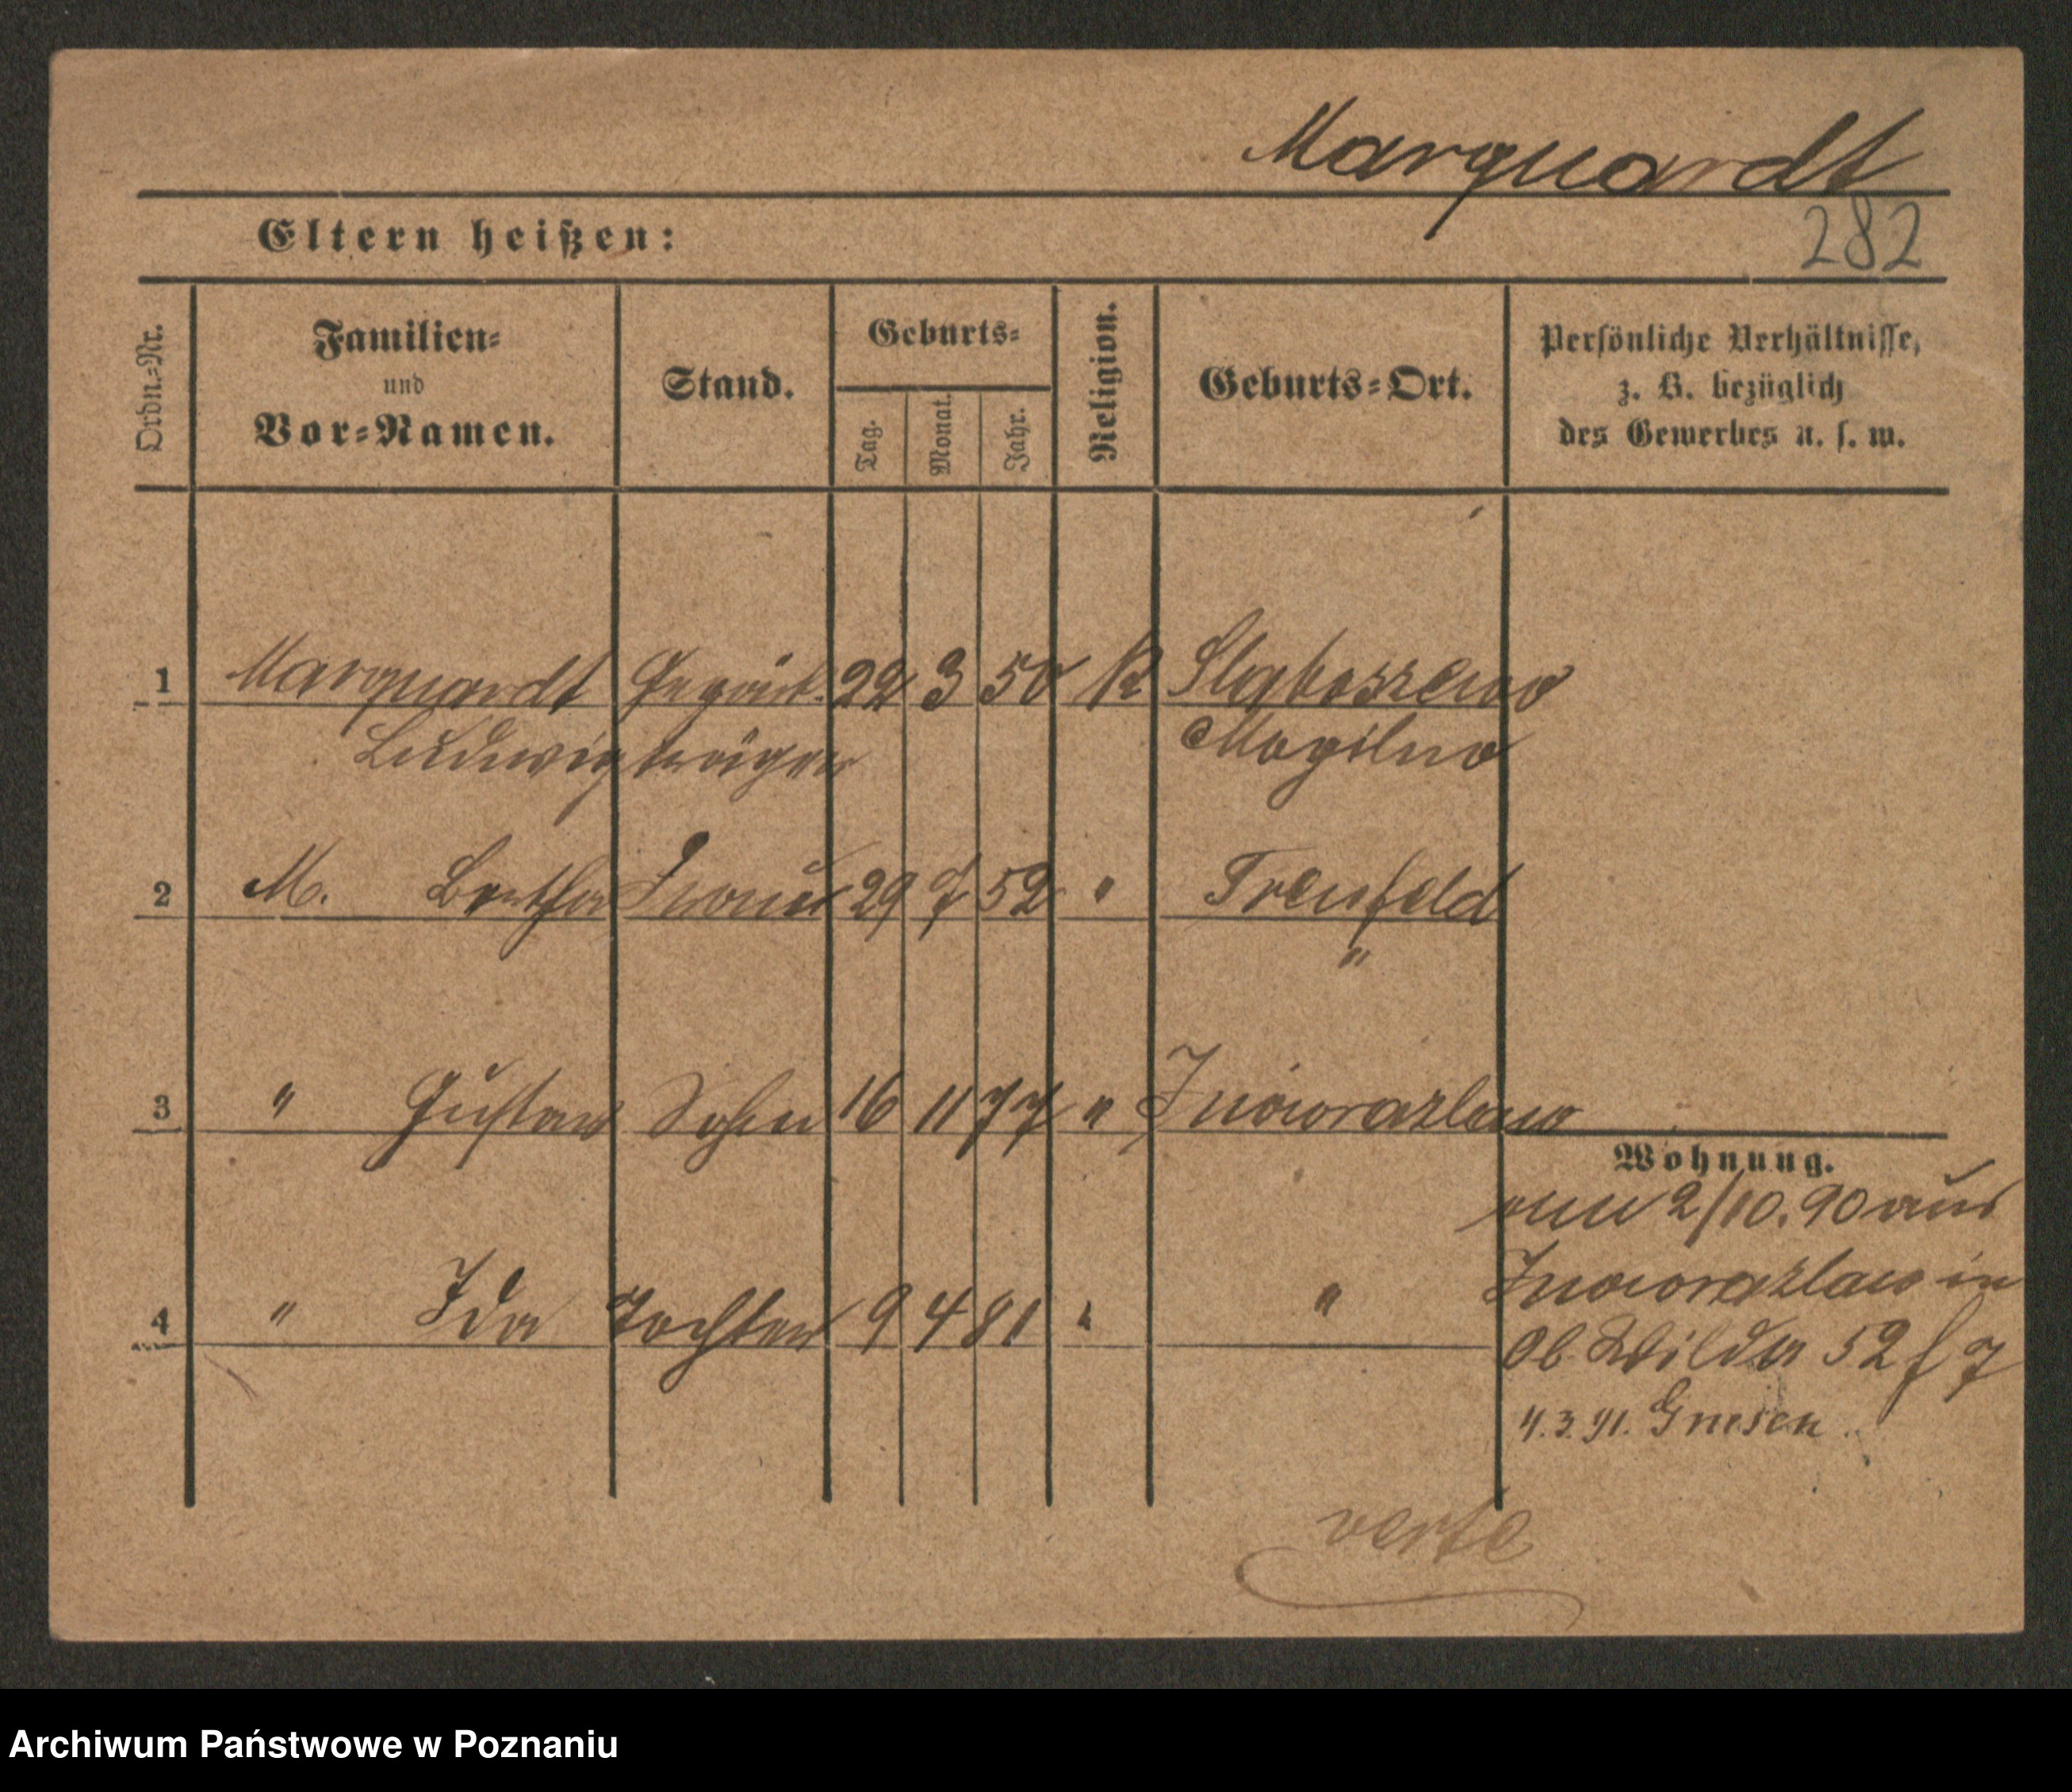 Marquardt
282
Eltern heißen:
Ordn.-Nr.
Familien-
und
Vor-Namen.
Stand.
Geburts-
Tag.
Monat.
Jahr.
Religion.
Geburts-Ort.
Persönliche Verhältnisse,
z. B. bezüglich
des Gewerbes u. s. w.
1 Marquardt Gepäck- 22 3 50 K Slaboszewo
Ludwig träger Mogilno
2 M. Bertha Frau 29 7 52 " Treufeld
"
3 " Gustav Sohn 16 11 77 " Inowrazlaw
4 " Ida Tochter 9 4 81 " "
Wohnung.
2/10.90 aus
Inowrazlaw in
Ob. Wilda 52
4.3.91. Gnesen
verte
Archiwum Państwowe w Poznaniu